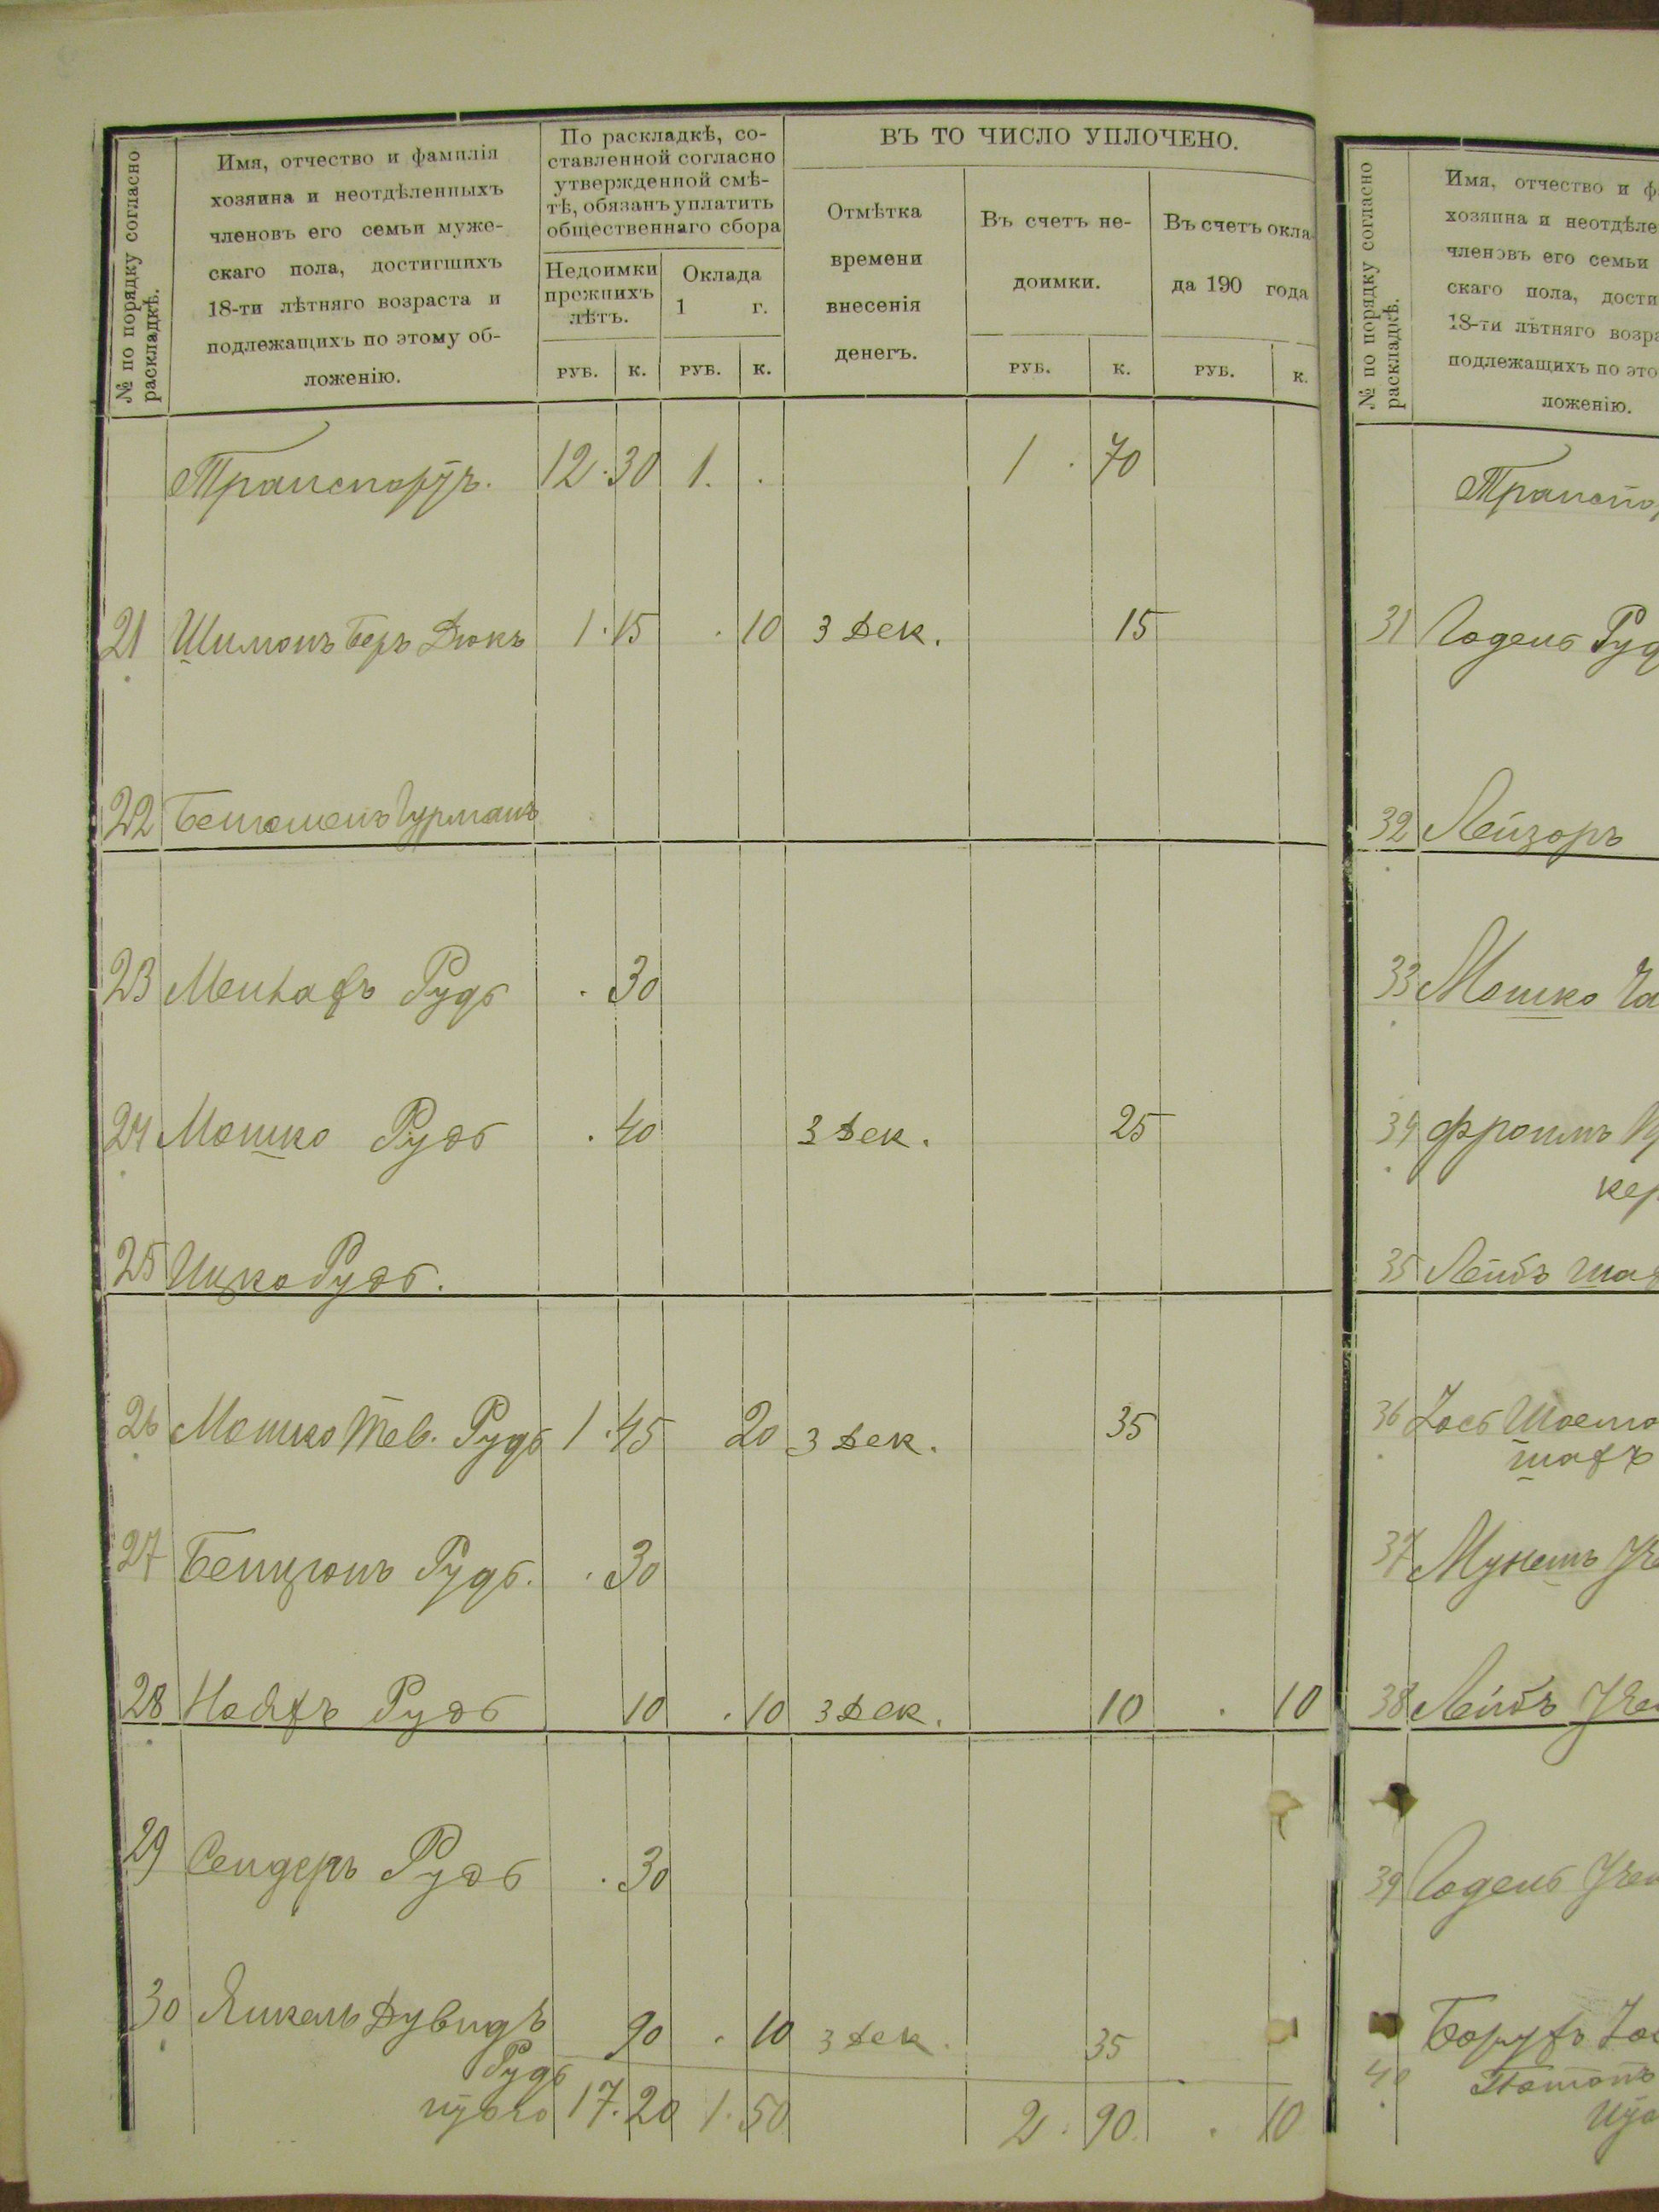 № по порядку согласно
раскладкѣ.
Имя, отчество и фамилія
хозяина и неотдѣленныхъ
членовъ его семьи муже-
скаго пола, достигшихъ
18-ти лѣтняго возраста и
подлежащихъ по этому об-
ложенію.
По раскладкѣ, со-
ставленной согласно
утвержденной смѣ-
тѣ, обязанъ уплатить
общественнаго сбора
Недоимки
прежнихъ
лѣтъ.
Оклада
1 г.
ВЪ ТО ЧИСЛО УПЛОЧЕНО.
Отмѣтка
времени
внесенія
денегъ.
Въ счетъ не-
доимки.
Въ счетъ окла-
да 190 года
РУБ. К. РУБ. К. РУБ. К. РУБ. К.
Транспортъ. 12. 30 1. . 1. 70
21 Шимонъ Беръ Дюкъ 1. 15 . 10 3 Дек. 15
22 Гурманъ
23 Рудь . 30
24 Мошко Рудь . 40 3 Дек. 25
25 Ицко Рудь.
26 Мошко Тев. Рудь 1. 45 20 3 Дек. 35
27 Бенционъ Рудь. . 30
28 Рудь 10 . 10 3 Дек. 10 . 10
29 Сендеръ Рудь . 30
30 Янкель Дувидъ 90 . 10 3 Дек. 35
Рудь
итого 17. 20 1. 50 2. 90. . 10
№ по порядку согласно
раскладкѣ.
Имя, отчество и ф
хозяина и неотдѣле
членовъ его семьи
скаго пола, дости
18-ти лѣтняго возра
подлежащихъ по это
ложенію.
Транспо
31 Годель Руд
32 Лейзоръ
33 Мошко
34 Фроимъ
кер
35 Лейбъ
36 Іось
37
38 Лейбъ
39 Годель
40 Борухъ Іос